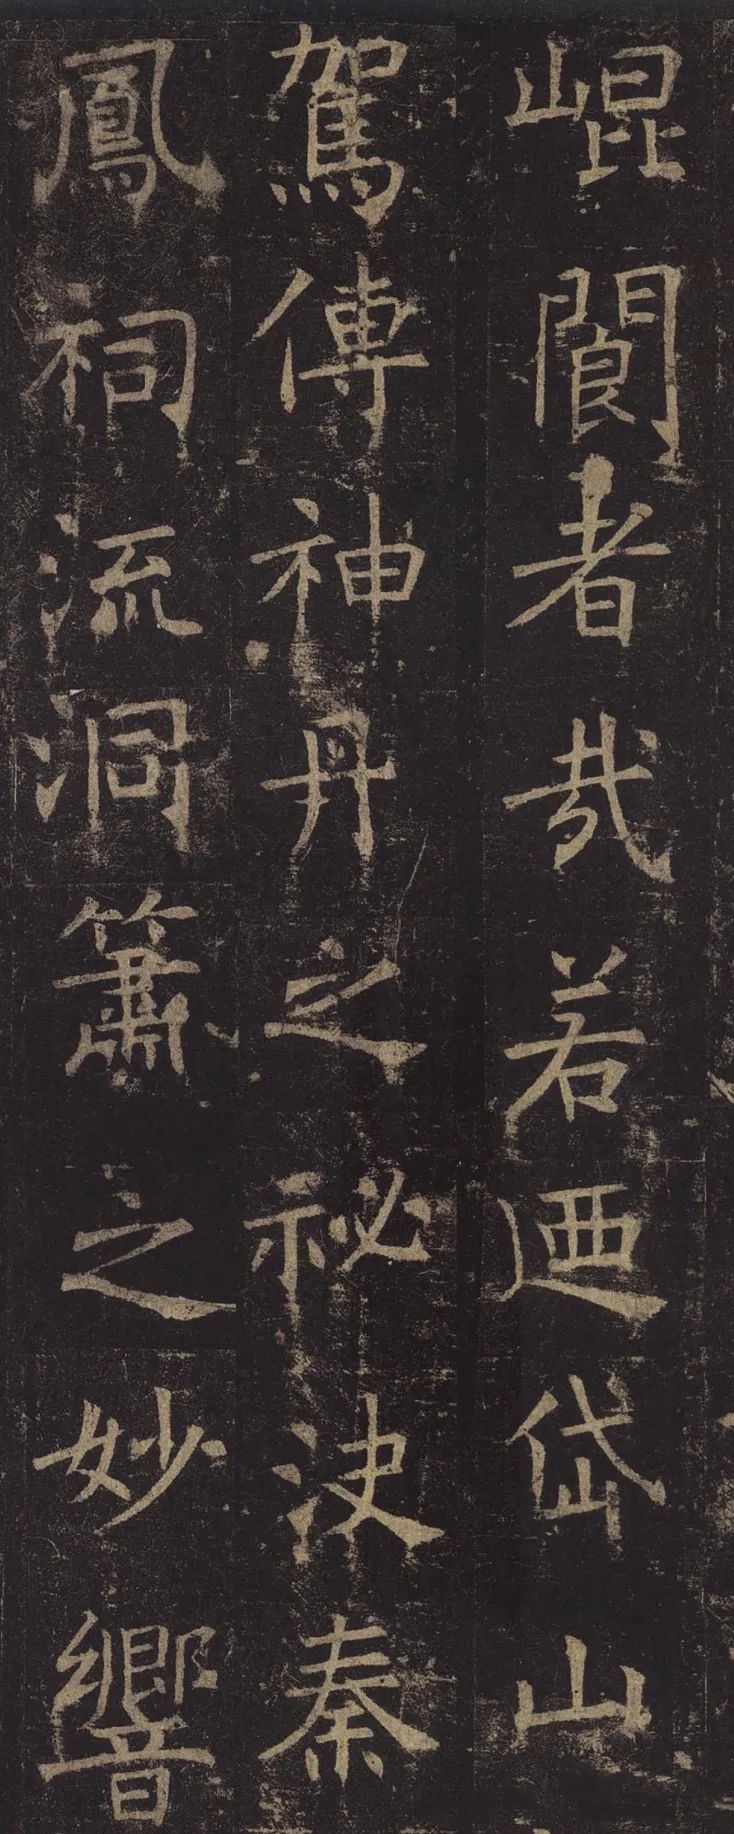 崐閬者哉若迺岱山
駕傳神丹之祕決秦
鳳祠流洞簫之妙響